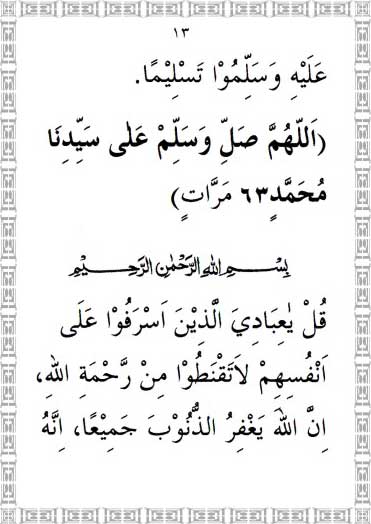 ١٣
عَلَيْهِ وَسَلِّمُوْا تَسْلِيْمًا.
(اَللّٰهُمَّ صَلِّ وَسَلِّمْ عَلٰى سَيِّدِنَا
مُحَمَّدٍ ٦٣ مَرَّاتٍ)
بِسْمِ اللهِ الرَّحْمٰنِ الرَّحِيْمِ
قُلْ يٰعِبَادِيَ الَّذِيْنَ اَسْرَفُوْا عَلَى
اَنْفُسِهِمْ لَاتَقْنَطُوْا مِنْ رَّحْمَةِ اللهِ،
اِنَّ اللهَ يَغْفِرُ الذُّنُوْبَ جَمِيْعًا، اِنَّهُ